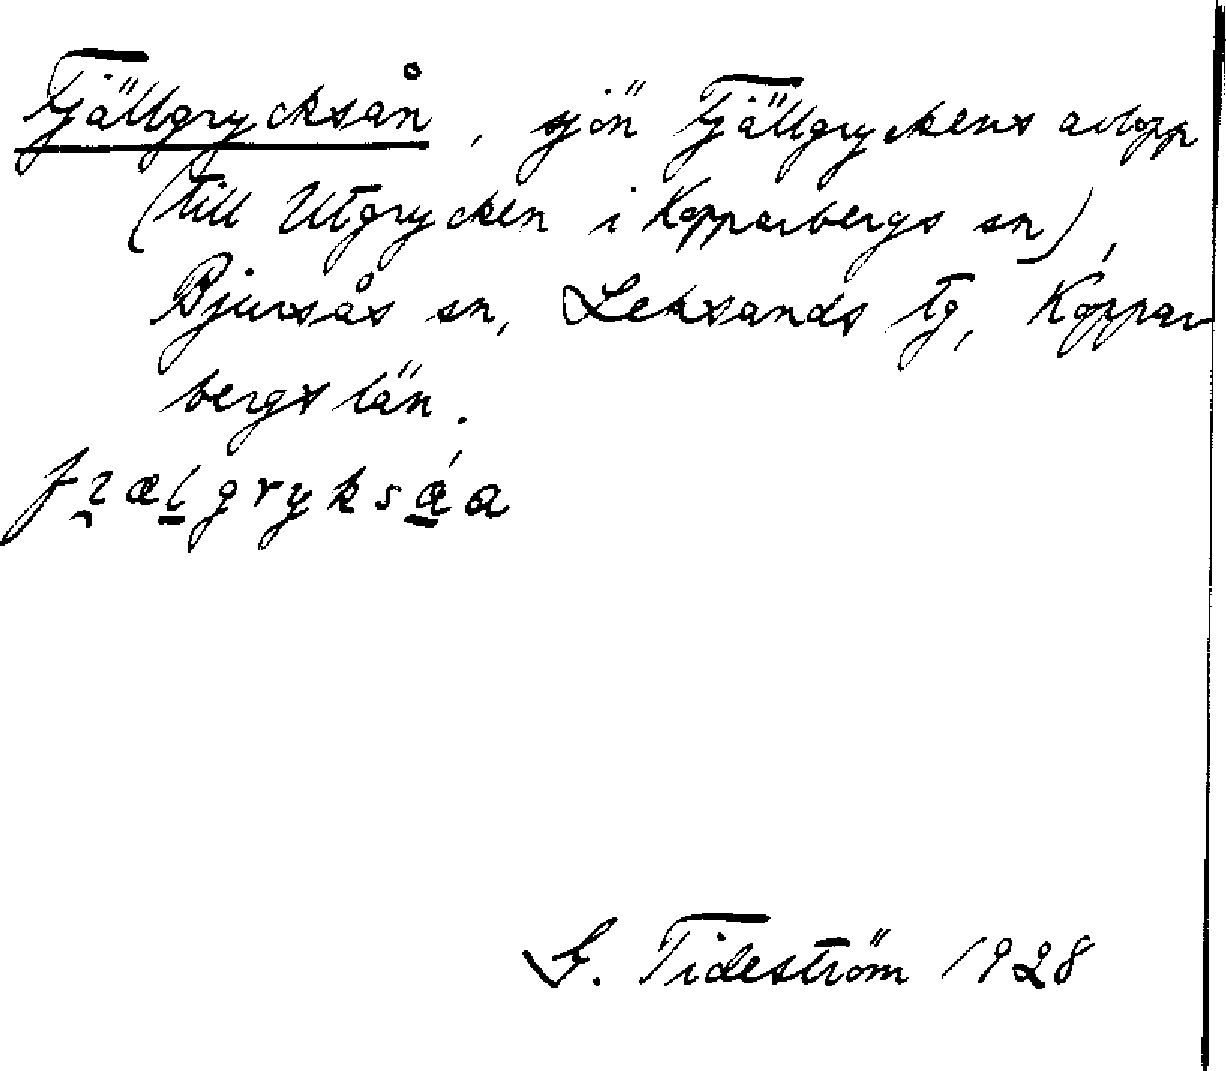 Fjällgrycksån, sjön Fjällgryckens avlopp
(till Utgrycken i Kopparbergs sn),
Bjursås sn, Leksands tg, Koppar
bergs län.
G. Tideström 1928